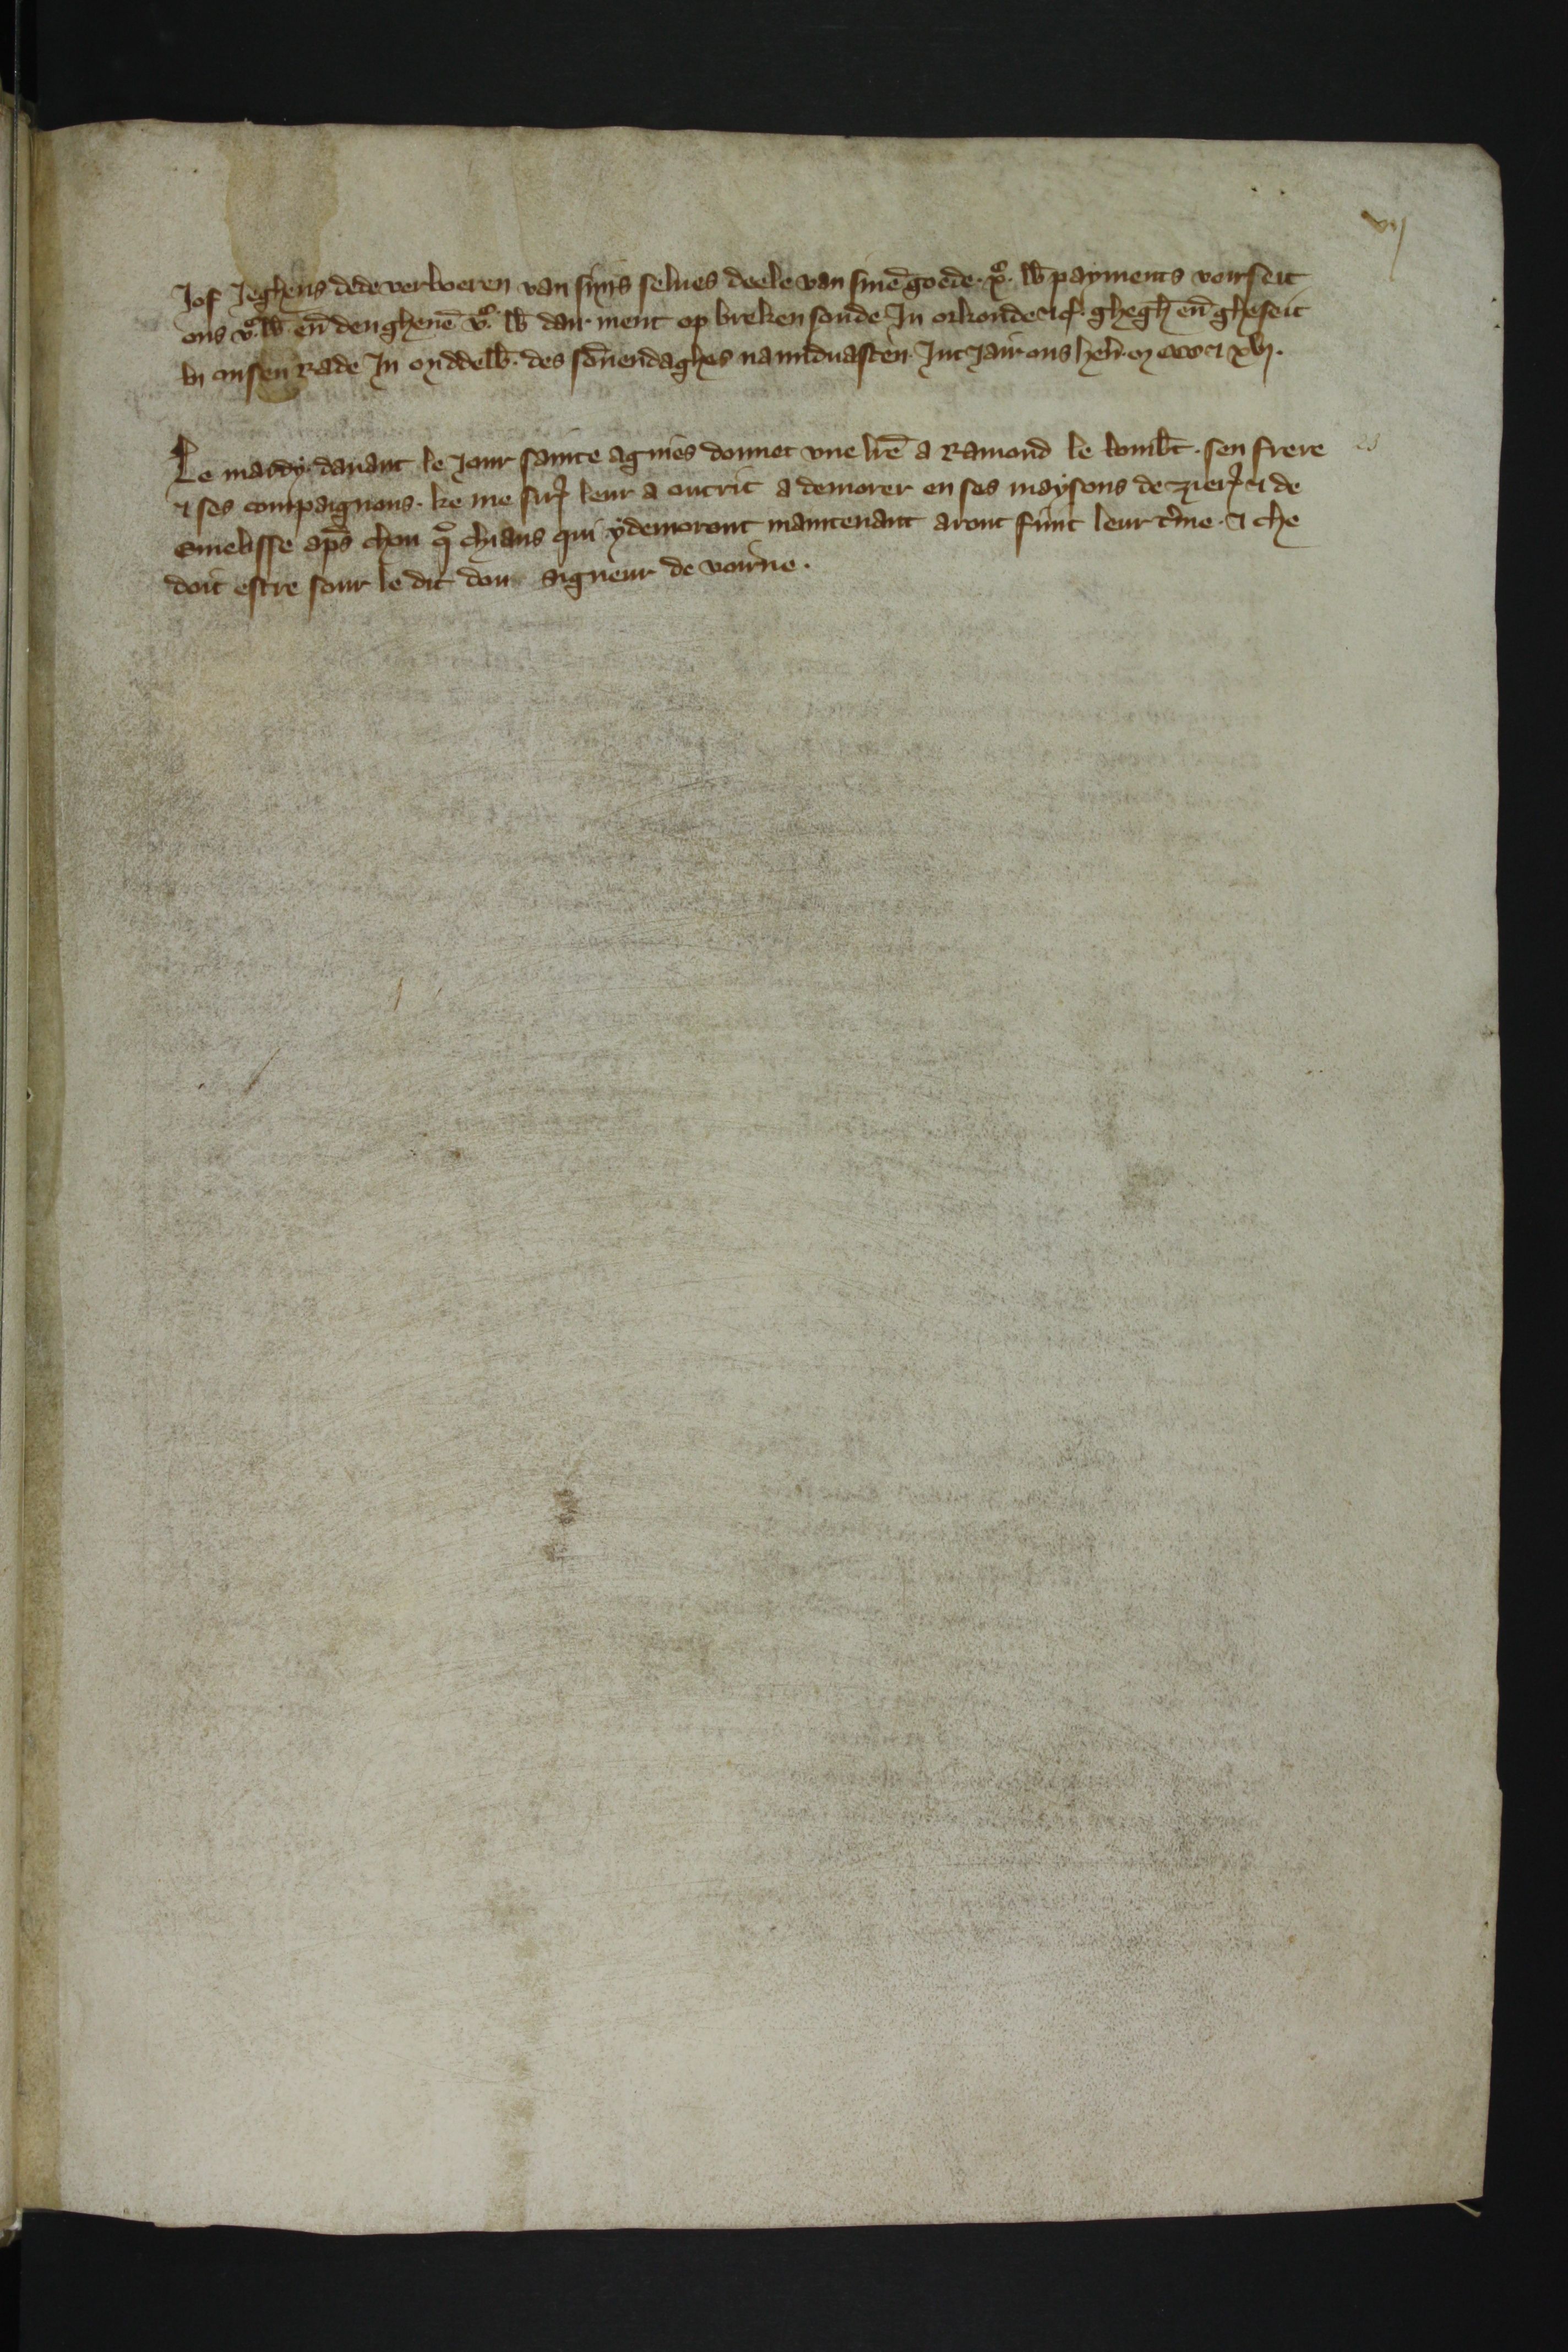 vij
Jof Jeghens dede verweren van sijns selues deele van sinē goede. xͦ. lb̄ payments voirseit
ons vͦ. lb̄ en̄ den ghenē vͦ. lb̄ dair ment op breken soude Jn orkonde ⁊ cͭ. ghegh̄ en̄ gheseit
bi onsen Rade Jn middelb̄. des sōnendaghes na midvasten. Jnt Jair ons hen̄. m ccc ⁊ xvj.
Le mardy dauant le Jour sainte agnies donnet vne lrē a Ramond le lomb̄t. sen frere
⁊ ses compaignons. ke me sirꝭ leur a outrit a demorer en ses maysons de zierꝭ ⁊ de
emelisse aps̄ chou qͦ chiaus qui y demoront maintenant aront finit leur t̄me. ⁊ che
doit estre sour le dit dou signeur de voirne.